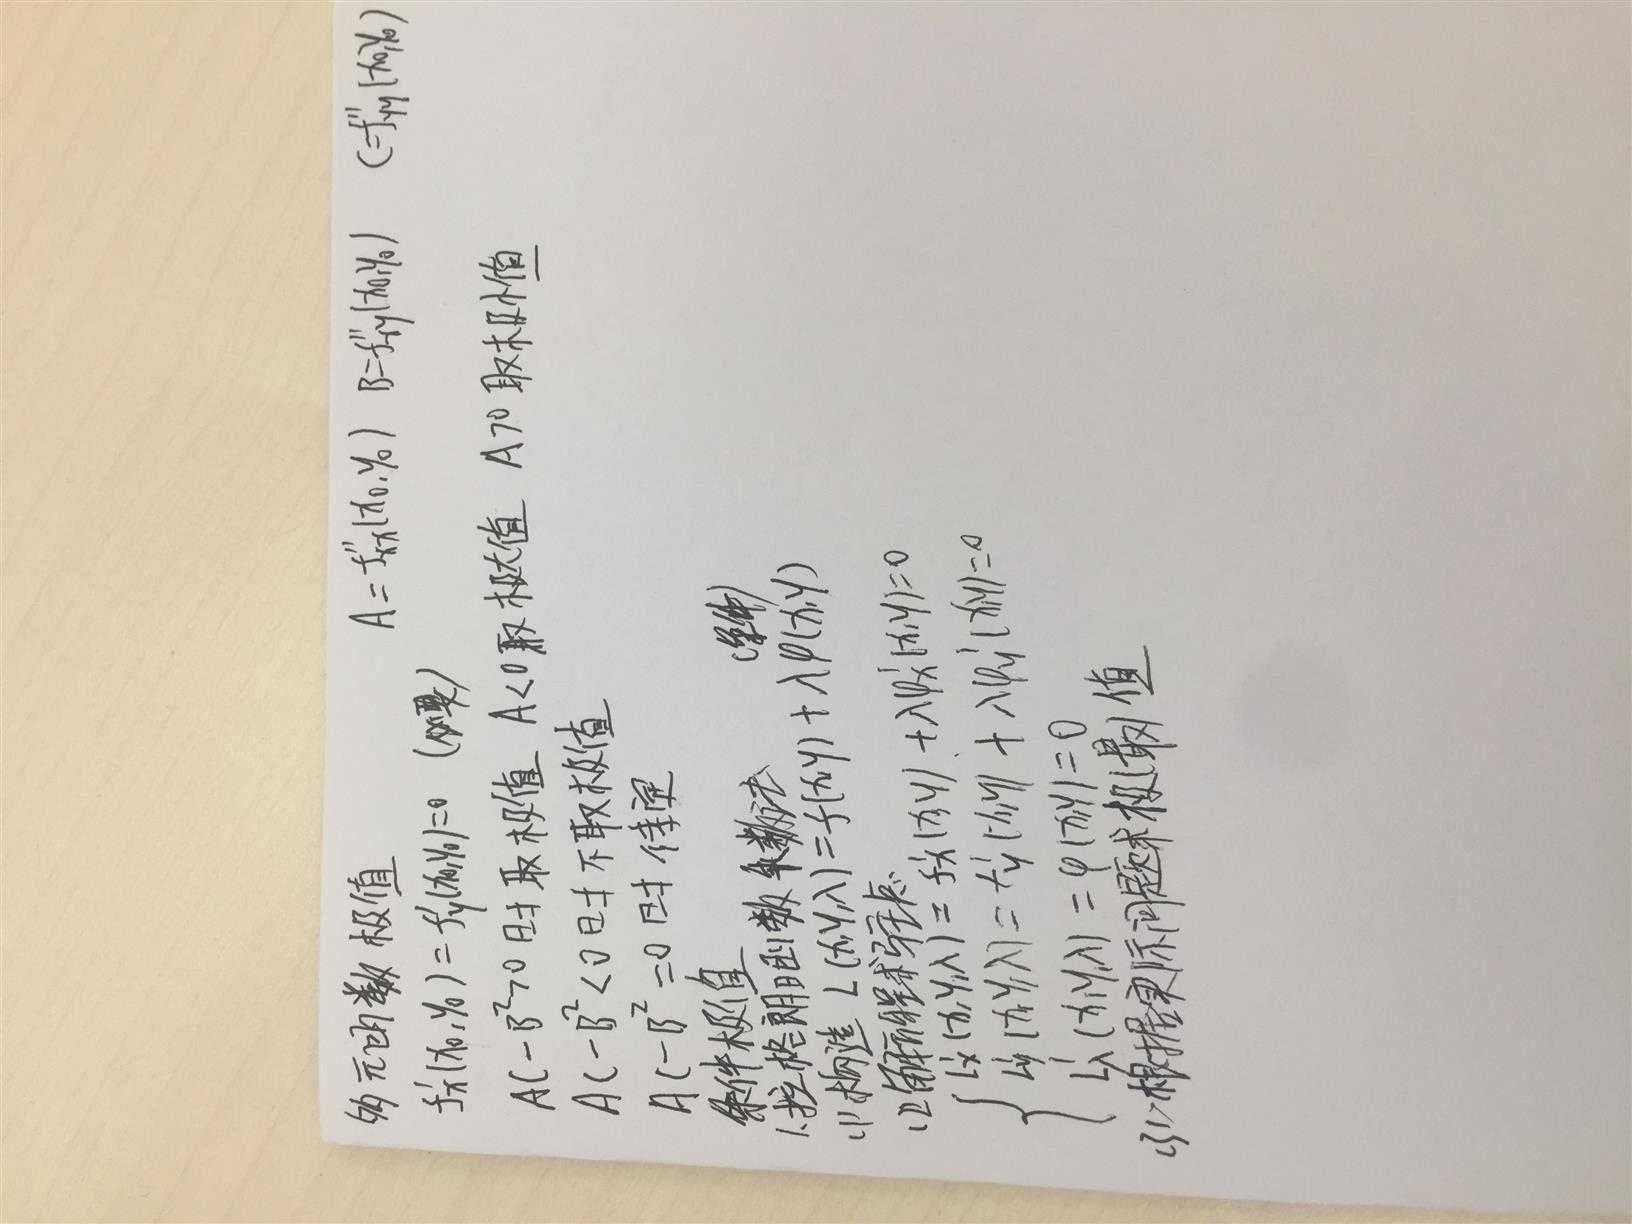 多元函数极值
f'x(x0,y0)=f'y(x0,y0)=0 (必要) A=f''xx(x0,y0) B=f''xy(x0,y0) C=f''yy(x0,y0)
AC-B²>0时取极值 A<0取极大值 A>0取极小值
AC-B²<0时不取极值
AC-B²=0时待定
条件极值
1.拉格朗日函数乘数法
(1)构造L(x,y,λ)=f(x,y)+λφ(x,y)
(2)解方程求驻点
L'x(x,y,λ)=f'x(x,y)+λφ'x(x,y)=0
L'y(x,y,λ)=f'y(x,y)+λφ'y(x,y)=0
L'λ(x,y,λ)=φ(x,y)=0
(3)根据实际问题求极(最)值